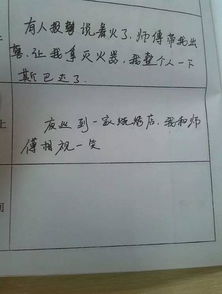 有人报警说着火了,师傅带我出
警,让我拿灭火器,我整个人一下
斯巴达了.
上
夜巡到一家烧烤店,我和师
傅相视一笑
间